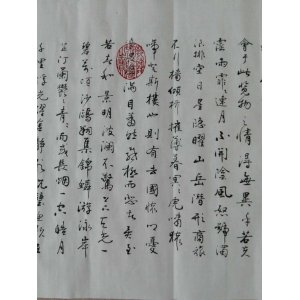 會于此覽物之情得無異乎若夫
霪雨霏霏連月不開陰風怒號濁
浪排空日星隱曜山岳潛形商旅
不行檣傾楫摧薄暮冥冥虎嘯猿
啼登斯樓也則有去國懷鄉憂
滿目蕭然感極而悲者矣至
若春和景明波瀾不驚上下天光一
碧萬頃沙鷗翔集錦鱗游泳岸
芷汀蘭青而或長烟一空皓月
千里浮光躍金靜影沉璧漁歌互